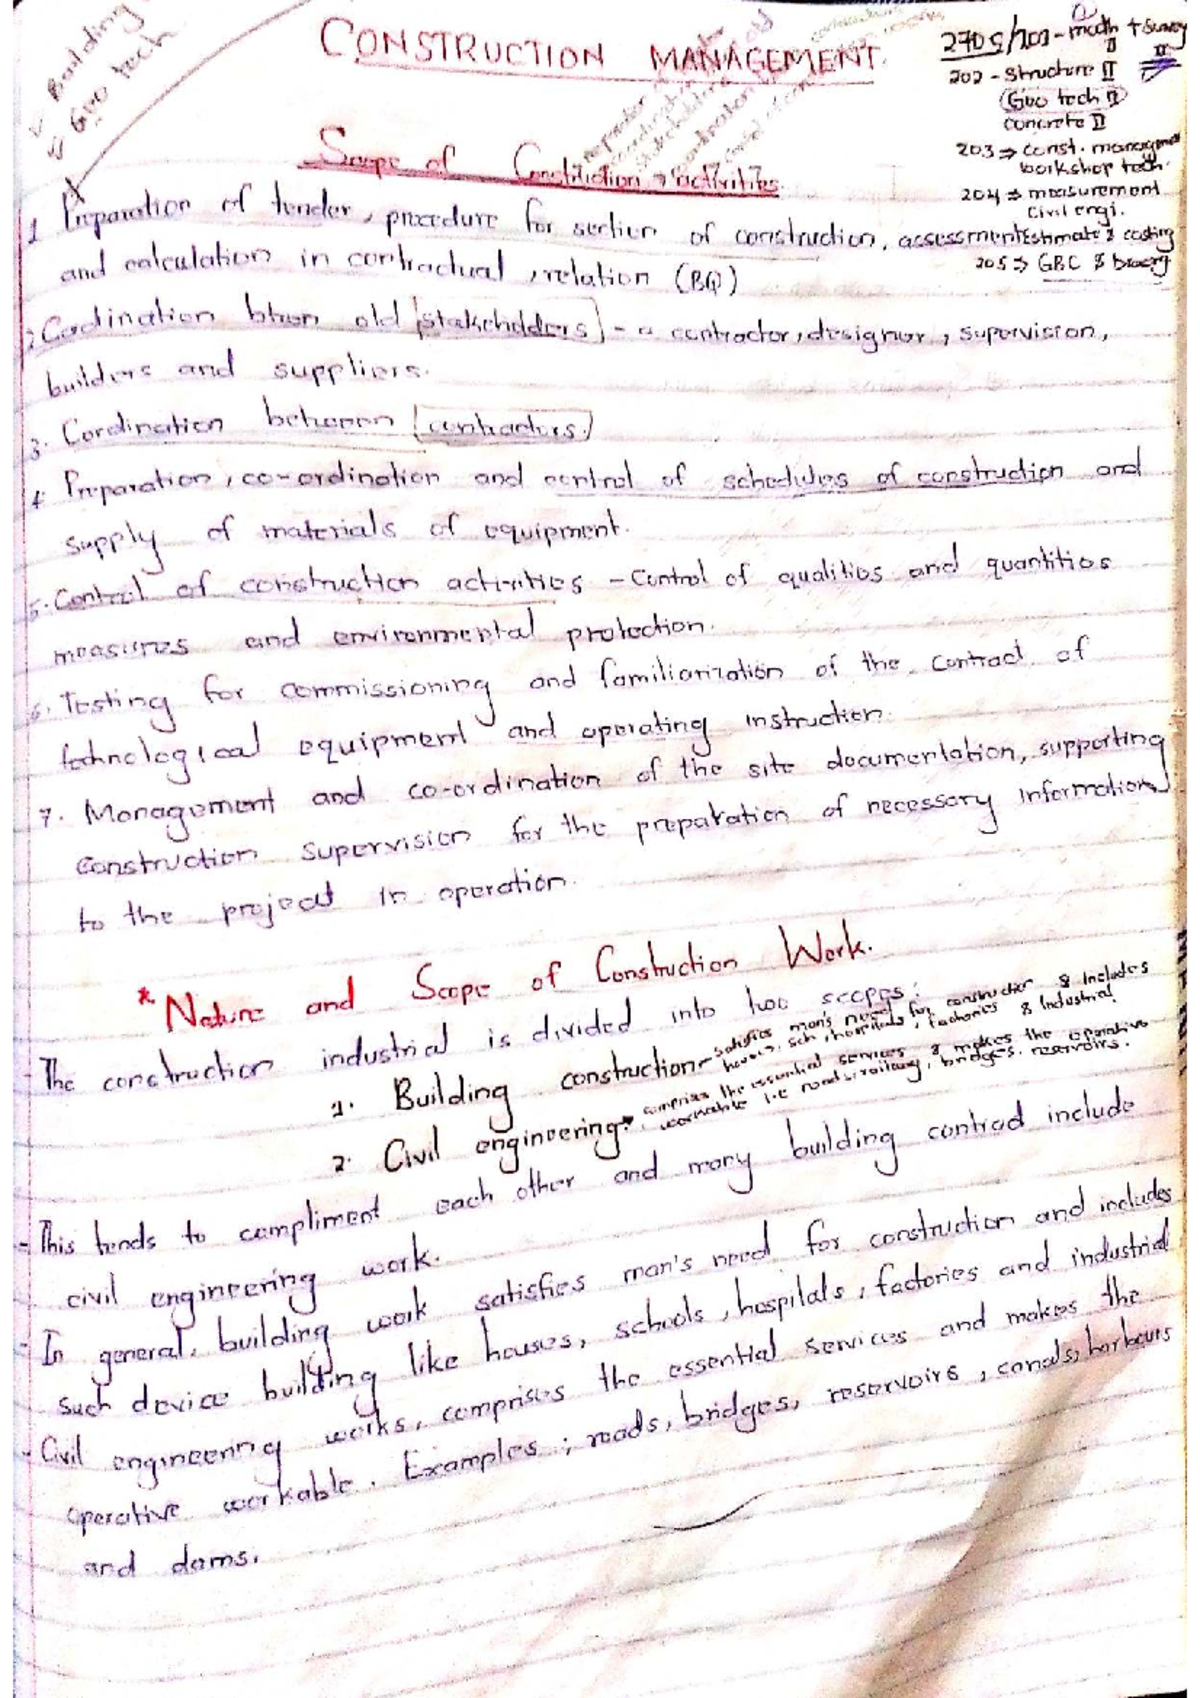 Building
Geo tech
CONSTRUCTION MANAGEMENT.
2705/201 - math II + Survey II
202 - Structure II
Geo tech II
Concrete II
203 ⇒ const. managment
workshop tech.
204 ⇒ measurement
Civil engi.
Estimate & costing
205 ⇒ GBC &
Scope of Construction activities
1 Preparation of tender, procedure for section of construction, assessment
and calculation in contractual relation (BQ)
2. Cordination btwn old stakeholders - a contractor, designor, supervision,
builders and suppliers.
3. Cordination between contractors.
4 Preparation, co-ordination and control of schedules of construction and
supply of materials of equipment.
5. Control of construction activities - Control of qualities and quantities
measures and environmental protection.
6. Testing for commissioning and familiarization of the contract of
technological equipment and operating instruction.
7. Management and co-ordination of the site documentation, supporting
construction supervision for the preparation of necessary information
to the project in operation.
* Nature and Scope of Construction Work.
The construction industrial is divided into two scopes:
1. Building construction - satisfies man's need for construction & includes
houses, sch, hospitals, factories & Industrial
2. Civil engineering - comprises the essential services & makes the operative
workable i.e roads, railway, bridges, reservoirs.
- This tends to compliment each other and many building contract include
civil engineering work.
- In general, building work satisfies man's need for construction and includes
such device building like houses, schools, hospitals, factories and industrial
- Civil engineering works, comprises the essential services and makes the
operative workable. Examples; roads, bridges, reservoirs, canals, harbours
and dams.